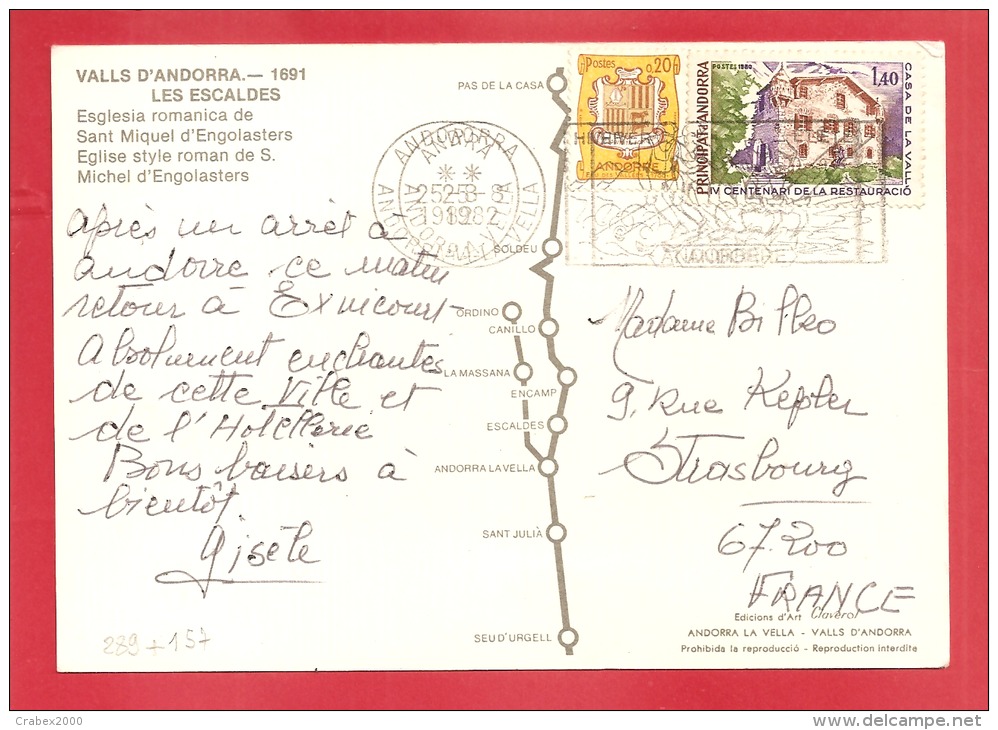 VALLS D'ANDORRA.— 1691
LES ESCALDES
Esglesia romanica de
Sant Miquel d'Engolasters
Eglise style roman de S.
Michel d'Engolasters
après un arrêt à
andorre ce matin
retour à
Absolument enchantés
de cette Ville et
de l'Hotellerie
Bons baisers à
bientôt
Gisèle
289 + 157
PAS DE LA CASA
SOLDEU
ORDINO
CANILLO
LA MASSANA
ENCAMP
ESCALDES
ANDORRA LA VELLA
SANT JULIÀ
SEU D'URGELL
Postes 0,20
ANDORRE
POSTES 1980
1,40
PRINCIPAT d'ANDORRA
CASA DE LA VALL
IV CENTENARI DE LA RESTAURACIÓ
ANDORRA
1982
Madame
9, Rue Kepler
Strasbourg
67.200
FRANCE
Edicions d'Art Claverol
ANDORRA LA VELLA - VALLS D'ANDORRA
Prohibida la reproducció - Reproduction interdite
Crabex2000
www.delcampe.net